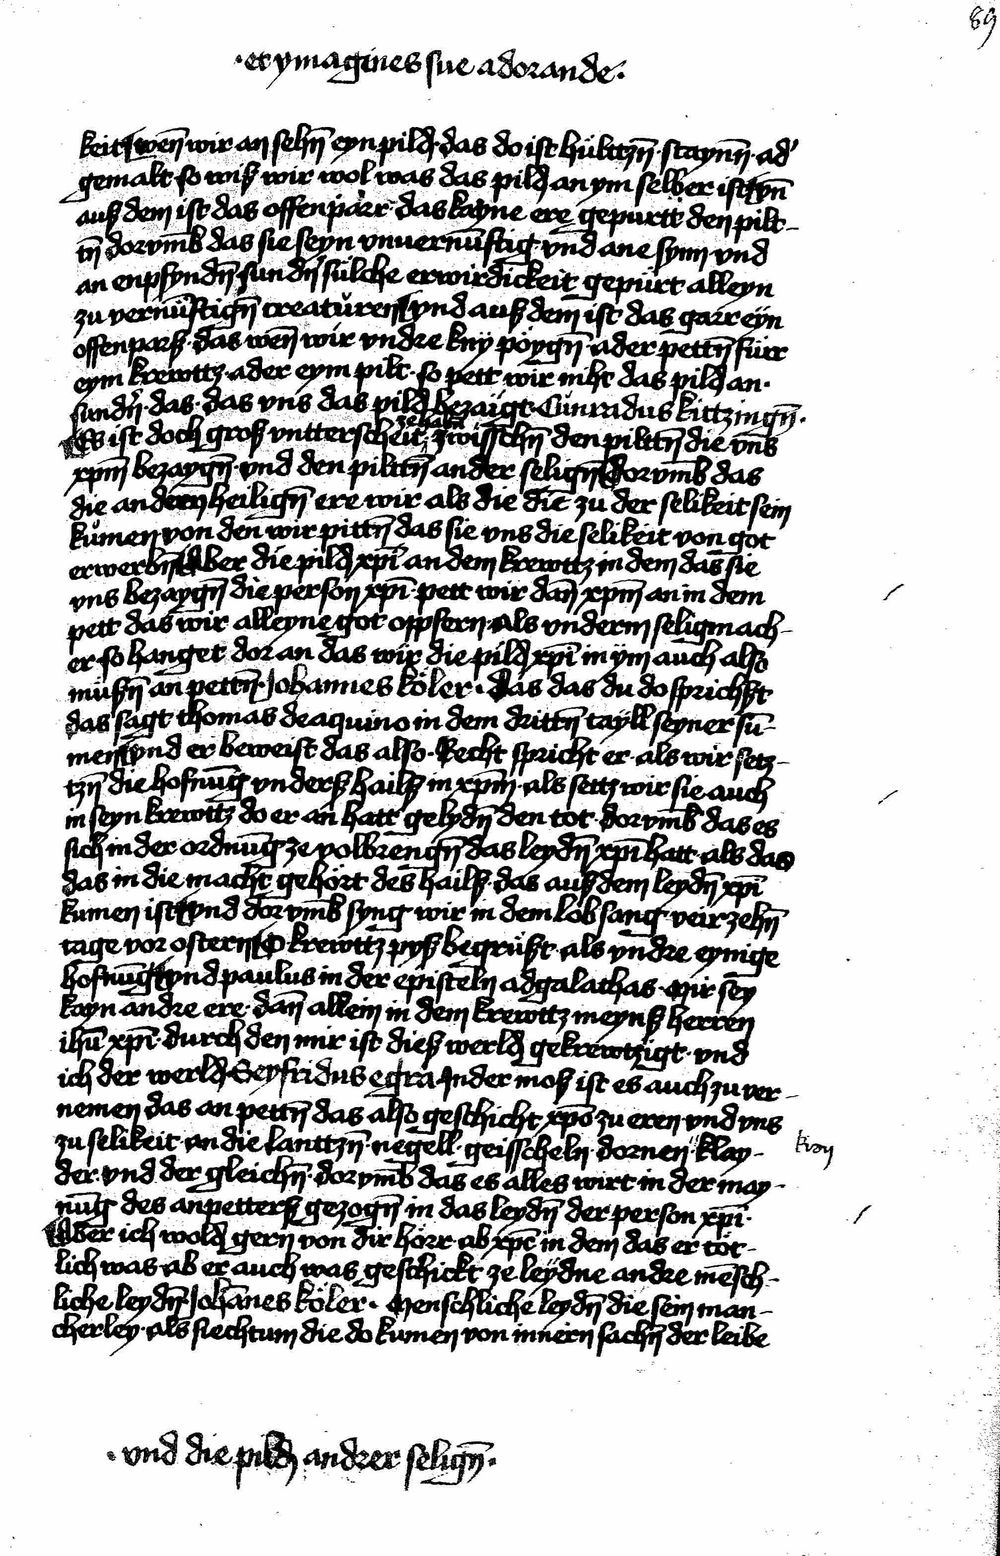 89
·et ymagines sue adorande·
keit wen̄ wir an sehn̄ eyn pild· das do ist hültzn̄· staynn̄· ad'
gemalt· so wiß wir wol was das pild an ym selber ist vn̄
auß dem ist das offenparr· das kayne ere gepurtt den pilt-
tn̄ dorvmb das sie seyn vnvernüftig· vnd ane synn vnd
an enpfyndn̄ sundn̄ sülche erwirdickeit gepürt alleyn
zu vernüftign̄ creatüren vnd auß dem ist das garr eyn
offenparß· das wen̄ wir vndre kny pöygn̄· ader pettn̄ fürr
eym krewttz· ader eym pilt· so pett wir niht das pild an·
sundn̄· das· das vns das pild bezaigt· Cunradus kittzingn̄·
Es ist doch groß vntterscheit zehabn̄ zwisschn̄ den pilttn̄ die vns
xpm̄ bezaygn̄· vnd den pilttn̄ ander selign̄ dorvmb das
die andern heilign̄ ere wir als die die zu der selikeit sein
kumen von den wir pittn̄ das sie vns die selikeit von got
erwerbn̄ Aber die pild xpī an dem krewttz in dem das sie
vns bezaygn̄ die person xpī· pett wir dan̄ xpm̄ an in dem
pett das wir alleyne got oppfern als vnderm seligmach-
er so hanget dor an das wir die pild xpī in ym auch also
müßn̄ an pettn̄· Johannes köler· Das das du do sprichst
das sagt thomas de aquino in dem drittn̄ tayll seyner sū-
men vnd er beweist das also· Recht spricht er· als wir setz-
tzn̄ die hofnūg vnderß hailß in xpm̄· als settz wir sie auch
in seyn krewttz do er an hatt gelydn̄ den tot· dorvmb das es
sich in der ordnūg ze volbrengn̄ das leydn̄ xpī hatt· als das
das in die macht gehört des hailß· das auß dem leydn̄ xpī
kumen ist vnd dorvmb syng wir in dem lobsang· veirzehn̄
tage vor ostern O krewttz pyß begrüßt· als vndre eynige
hofnūg vnd paulus in der episteln ad galathas· Mir sey
kayn andre ere· dan̄ allein in dem krewttz meynß herren
ihū xpī· durch den mir ist dieß werld gekrewtzigt· vnd
ich der werld· Seyfridus egra In der moß ist es auch zu ver-
nemen das an pettn̄ das also geschicht xpō zu eren vnd vns
zu selikeit· an die lanttzn̄· negell· geisscheln· dornen klay-
kron
der· vnd der gleichn̄· dorvmb das es alles wirt in der may-
nūg des anpetterß gezogn̄ in das leydn̄ der person xpī·
Aber ich wold gern von dir hörr· ab xpc̄ in dem das er töt-
lich was· ab er auch was geschickt ze leydne andre mēsch-
liche leydn̄· Johānes köler· Menschliche leydn̄ die sein man-
cherley· als siechtum die do kumen von innern sachn̄ der leibe
·vnd die pild andrer selign̄·